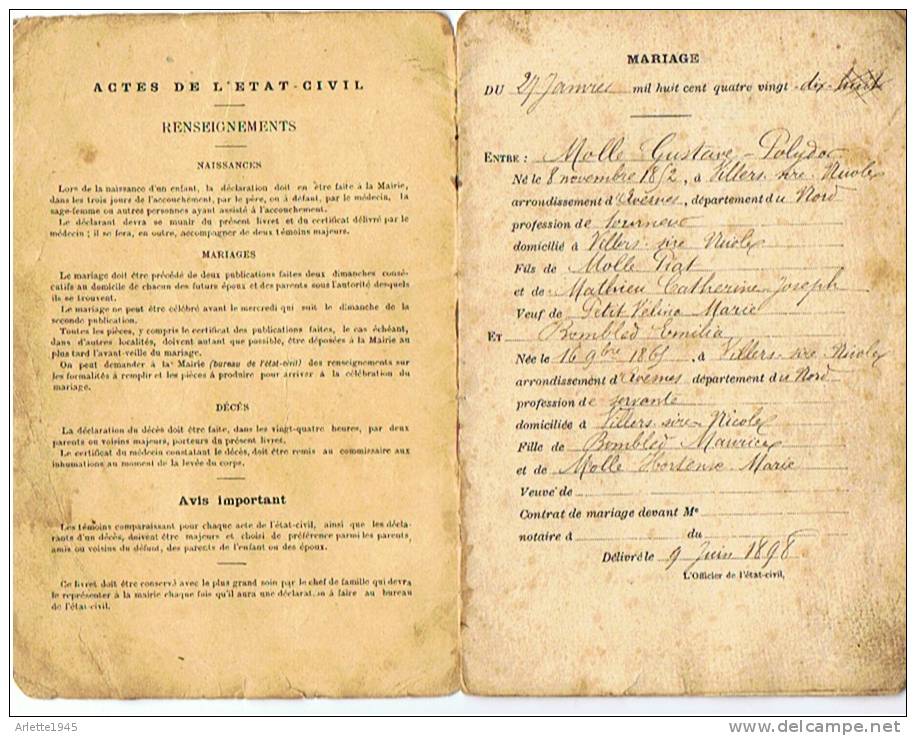 ACTES DE L'ETAT-CIVIL
RENSEIGNEMENTS
NAISSANCES
Lors de la naissance d'un enfant, la déclaration doit en être faite à la Mairie,
dans les trois jours de l'accouchement, par le père, ou à défaut, par le médecin, la
sage-femme ou autres personnes ayant assisté à l'accouchement.
Le déclarant devra se munir du présent livret et du certificat délivré par le
médecin ; il se fera, en outre, accompagner de deux témoins majeurs.
MARIAGES
Le mariage doit être précédé de deux publications faites deux dimanches consé-
cutifs au domicile de chacun des futurs époux et des parents sous l'autorité desquels
ils se trouvent.
Le mariage ne peut être célébré avant le mercredi qui suit le dimanche de la
seconde publication.
Toutes les pièces, y compris le certificat des publications faites, le cas échéant,
dans d'autres localités, doivent autant que possible, être déposées à la Mairie au
plus tard l'avant-veille du mariage.
On peut demander à la Mairie (bureau de l'état-civil) des renseignements sur
les formalités à remplir et les pièces à produire pour arriver à la célébration du
mariage.
DÉCÈS
La déclaration du décès doit être faite, dans les vingt-quatre heures, par deux
parents ou voisins majeurs, porteurs du présent livret.
Le certificat du médecin constatant le décès, doit être remis au commissaire aux
inhumations au moment de la levée du corps.
Avis important
Les témoins comparaissant pour chaque acte de l'état-civil, ainsi que les décla-
rants d'un décès, doivent être majeurs et choisi de préférence parmi les parents,
amis ou voisins du défunt, des parents de l'enfant ou des époux.
Ce livret doit être conservé avec le plus grand soin par le chef de famille qui devra
le représenter à la mairie chaque fois qu'il aura une déclaration à faire au bureau
de l'état-civil.
MARIAGE
DU 27 Janvier mil huit cent quatre vingt -dix-huit
ENTRE : Molle Gustave-Polydor
Né le 8 novembre 1852, à Villers-sire-Nicole
arrondissement d'Avesnes, département du Nord
profession de
domicilié à Villers-sire Nicole
Fils de Molle Piat
et de Mathieu Catherine-Joseph
Veuf de Petit Marie
ET Bombled Emilia
Née le 16 9bre 1865, à Villers-sire-Nicole
arrondissement d'Avesnes département du Nord
profession de servante
domiciliée à Villers sire-Nicole
Fille de Bombled Maurice
et de Molle Hortense-Marie
Veuve de
Contrat de mariage devant Me
notaire à du
Délivré le 9 Juin 1898
L'Officier de l'état-civil,
Arlette1945
www.delcampe.net